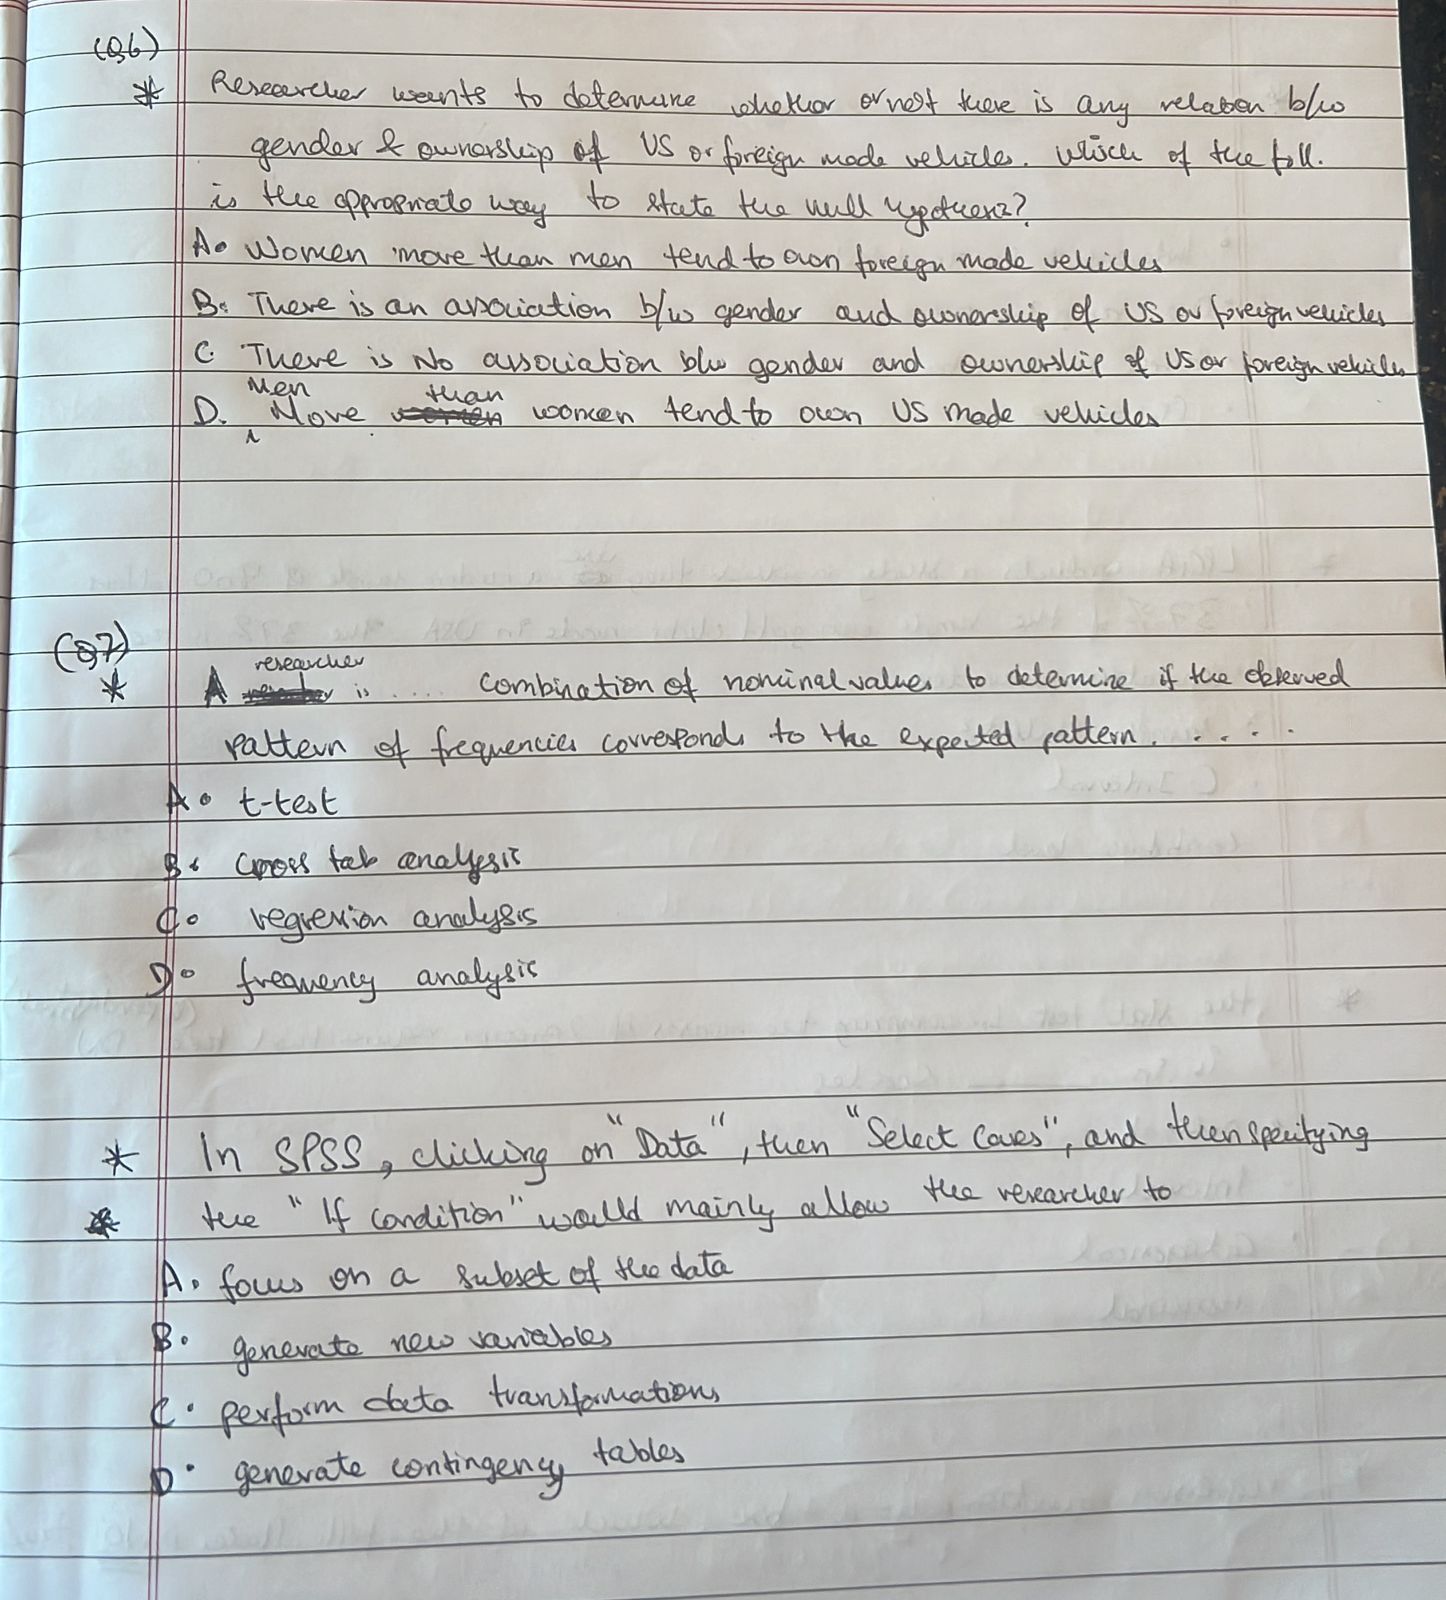 (Q6)
* Researcher wants to determine whether or not there is any relation b/w
gender & ownership of US or foreign made vehicles. Which of the foll.
is the appropriate way to state the null hypothesis?
A. Women more than men tend to own foreign made vehicles
B. There is an association b/w gender and ownership of US or foreign vehicles
C. There is No association b/w gender and ownership of US or foreign vehicles
Men than
D. More women tend to own US made vehicles
(Q7)
researcher
* A is .... combination of nominal values to determine if the observed
pattern of frequencies corresponds to the expected pattern. . . . .
A. t-test
B. Cross tab analysis
C. regression analysis
D. frequency analysis
* In SPSS, clicking on "Data", then "Select Cases", and then specifying
the "If condition" would mainly allow the researcher to
A. focus on a subset of the data
B. generate new variables
C. perform data transformations
D. generate contingency tables